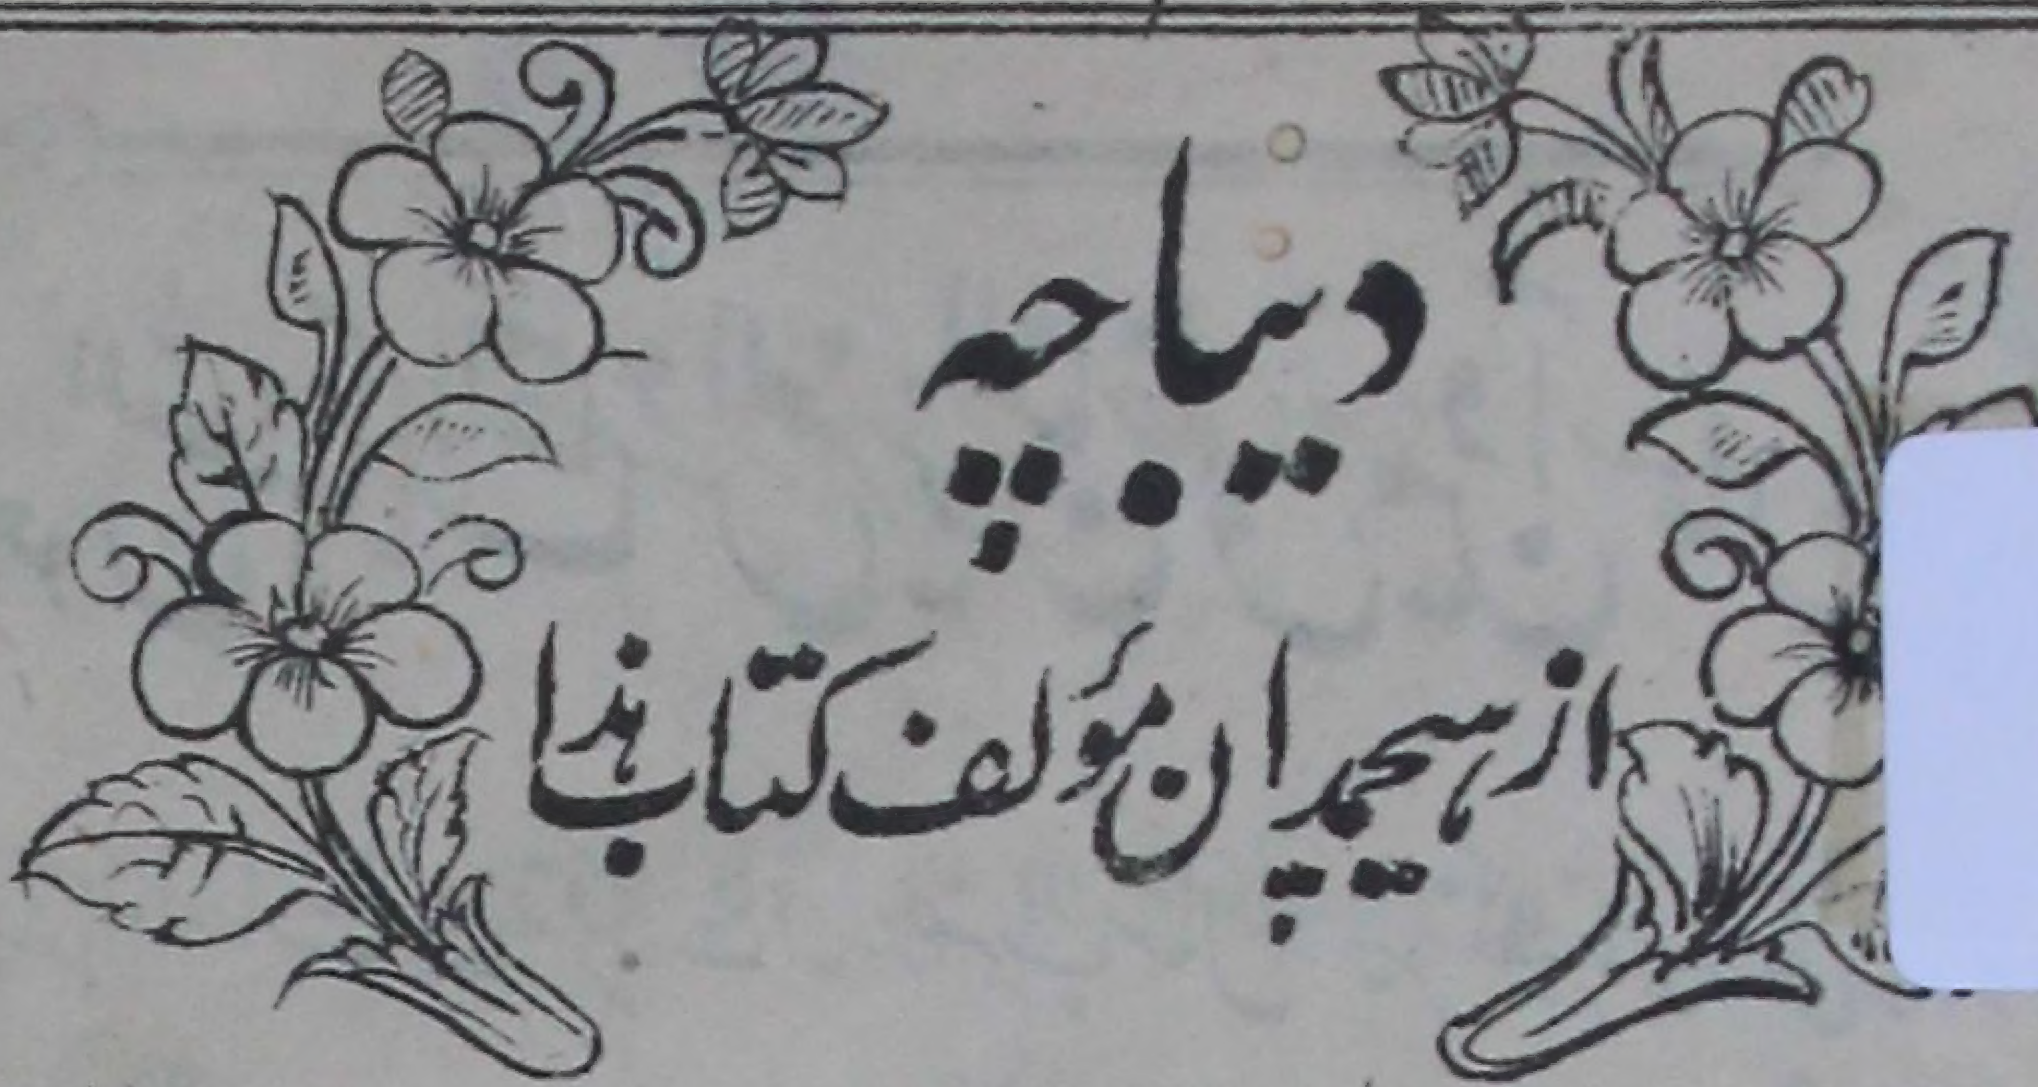 دیباچہ
از ہیچمدان مؤلف کتاب ہذا